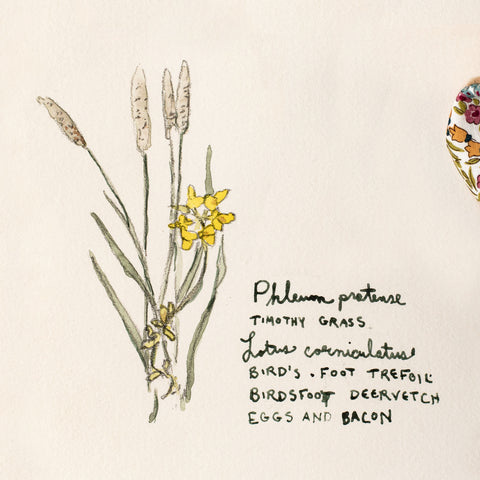 Phleum pratense
TIMOTHY GRASS
Lotus corniculatus
BIRD'S . FOOT TREFOIL
BIRDSFOOT DEERVETCH
EGGS AND BACON